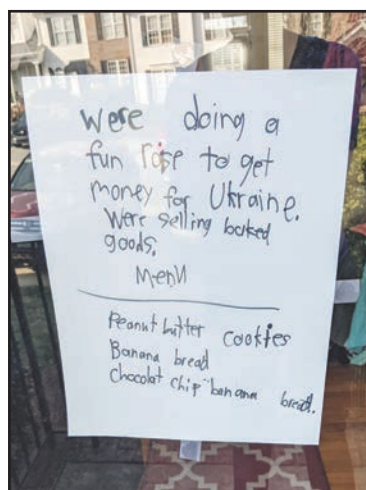 were doing a
fun rise to get
money for Ukraine.
Were selling baked
goods.
Menu
Peanut butter cookies
Banana bread
Chocolat chip banana bread.